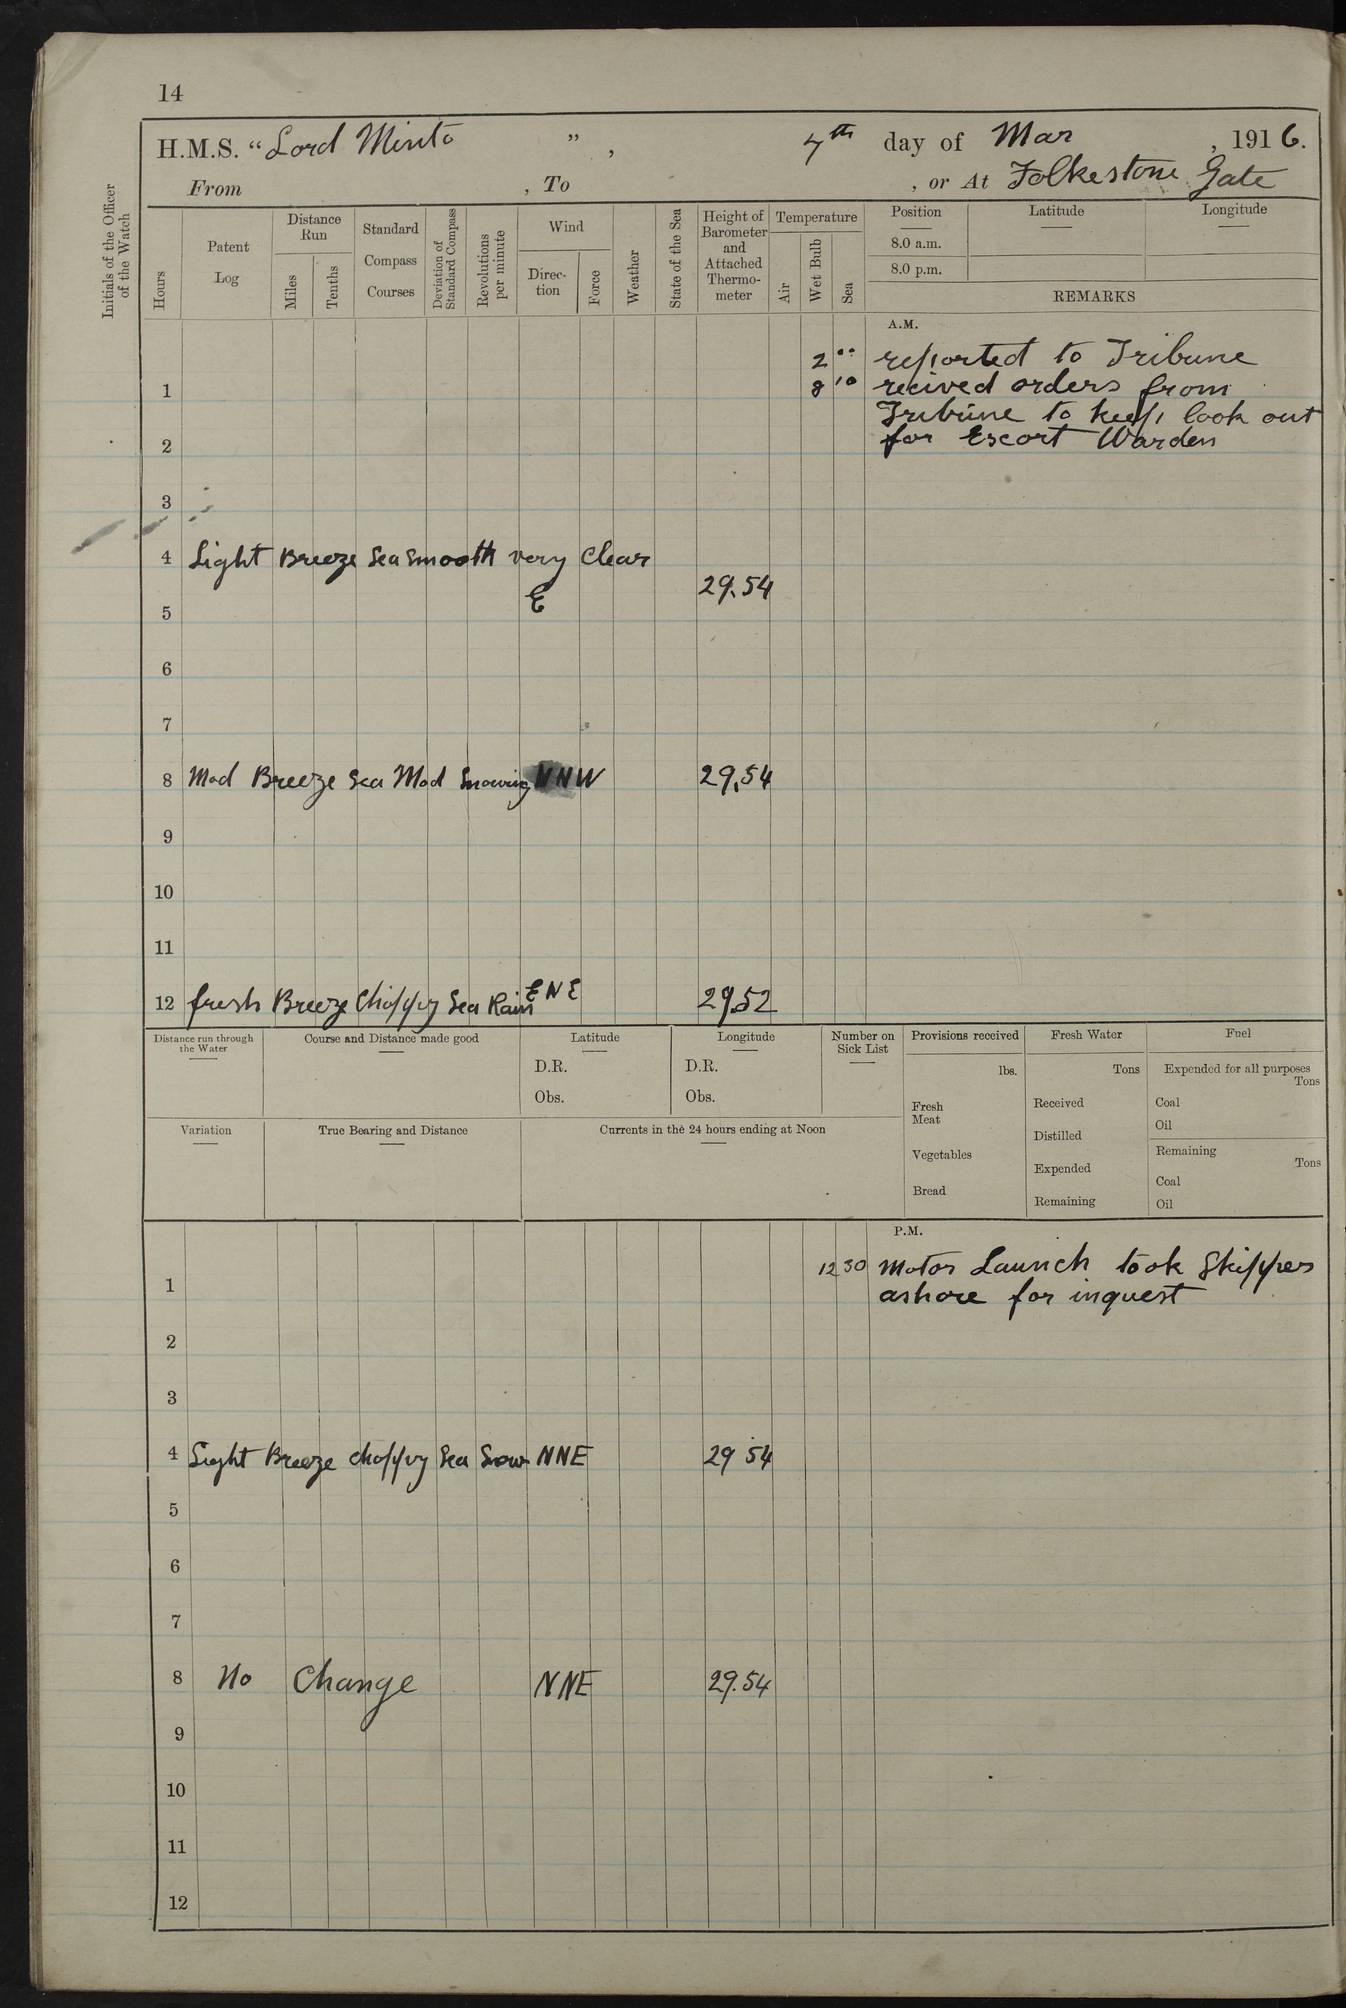 14
H.M.S. "Lord Minto ", 7th day of Mar, 1916.
From , To , or At Folkestone Gate
Initials of the Officer of the Watch
Hours
Patent Log
Distance Run
Miles
Tenths
Standard Compass Courses
Deviation of Standard Compass
Revolutions per minute
Wind
Direc-tion
Force
Weather
State of the Sea
Height of Barometer and Attached Thermo-meter
Temperature
Air
Wet Bulb
Sea
Position
8.0 a.m.
8.0 p.m.
Latitude
Longitude
REMARKS
A.M.
2 00 reported to Tribune
1 8 10 recived orders from
Tribune to keep look out
2 for Escort Warden
3
4 Light Breeze Sea Smooth very Clear
E 29.54
5
6
7
8 Mod Breeze Sea Mod Snowing NNW 29.54
9
10
11
12 fresh Breeze Choppy Sea Rain ENE 29.52
Distance run through the Water
Course and Distance made good
Latitude
D.R.
Obs.
Longitude
D.R.
Obs.
Number on Sick List
Provisions received
lbs.
Fresh Meat
Vegetables
Bread
Fresh Water
Tons
Received
Distilled
Expended
Remaining
Fuel
Expended for all purposes
Tons
Coal
Oil
Remaining
Tons
Coal
Oil
Variation
True Bearing and Distance
Currents in the 24 hours ending at Noon
P.M.
12 30 Motor Launch took Skippers
1 ashore for inquest
2
3
4 Light Breeze choppy Sea Snow NNE 29 54
5
6
7
8 No Change NNE 29.54
9
10
11
12